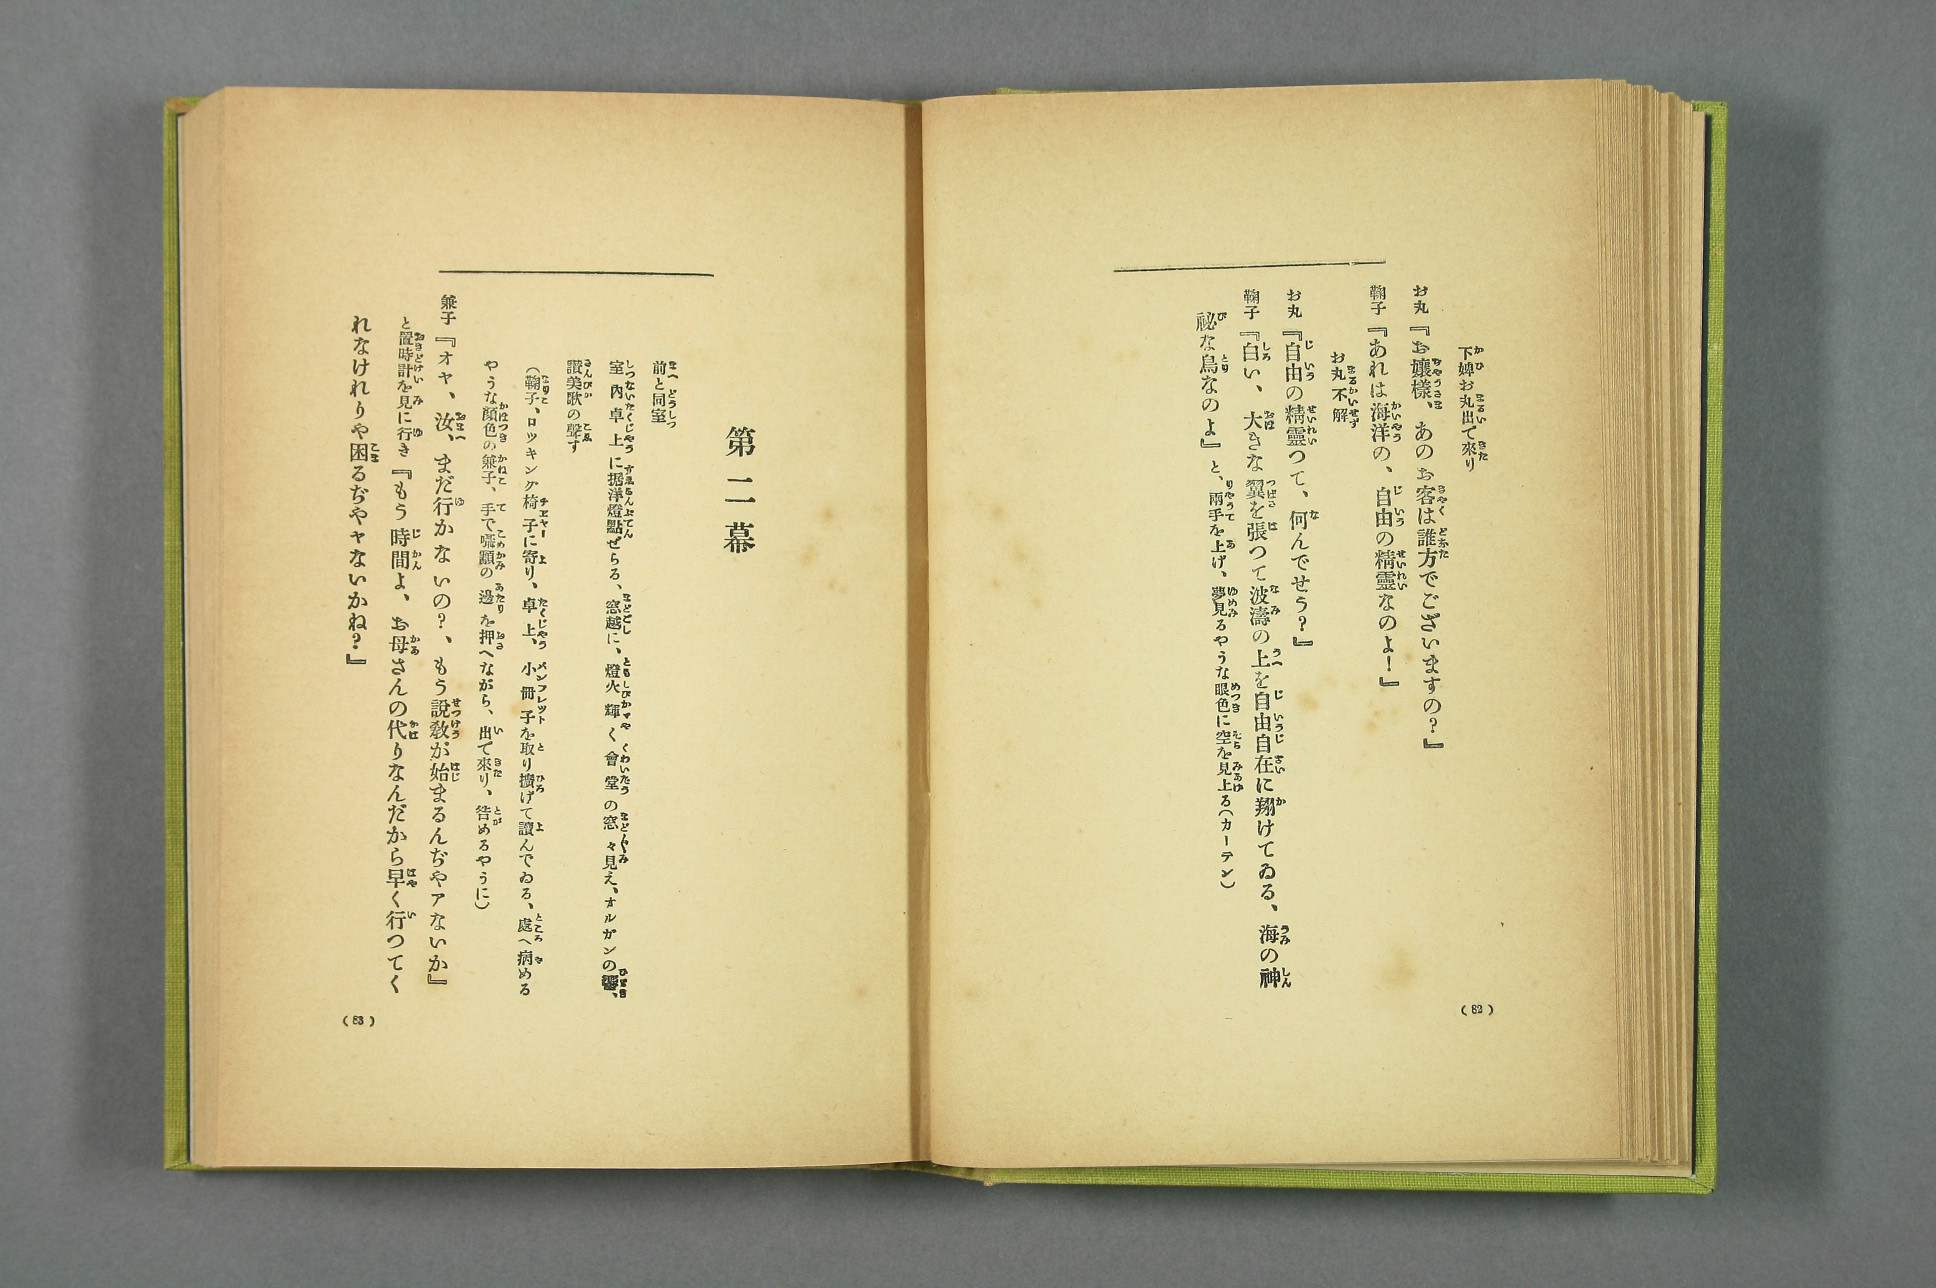 下婢お丸出て來り
お丸『お孃樣、あのお客は誰方でございますの?』
鞠子『あれは海洋の、自由の精靈なのよ!』
お丸不解
お丸『自由の精靈つて、何んでせう?』
鞠子『白い、大きな翼を張つて波濤の上を自由自在に翔けてゐる、海の神
祕な鳥なのよ』と、兩手を上げ、夢見るやうな眼色に空を見上る(カーテン)
(82)
第二幕
前と同室
室内卓上に据洋燈點ぜらる、窓越に、燈火輝く會堂の窓々見え、オルガンの響、
讃美歌の聲す
(鞠子、ロツキング椅子に寄り、卓上、小冊子を取り擴げて讀んでゐる、處へ病める
やうな顏色の兼子、手で顳顬の邊を押へながら、出て來り、咎めるやうに)
兼子『オヤ、汝、まだ行かないの?、もう說敎が始まるんぢやアないか』
と置時計を見に行き『もう時間よ、お母さんの代りなんだから早く行つてく
れなけれりや困るぢやヤないかね?』
(83)